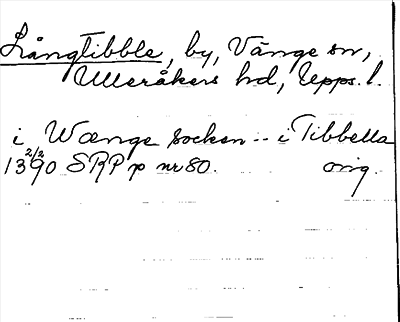 Långtibble, by, Vänge sn,
Ulleråkers hd, Upps. l.
i Wænge socken -- i Tibbella
13 2/2 90 SRP p nr 80. orig.